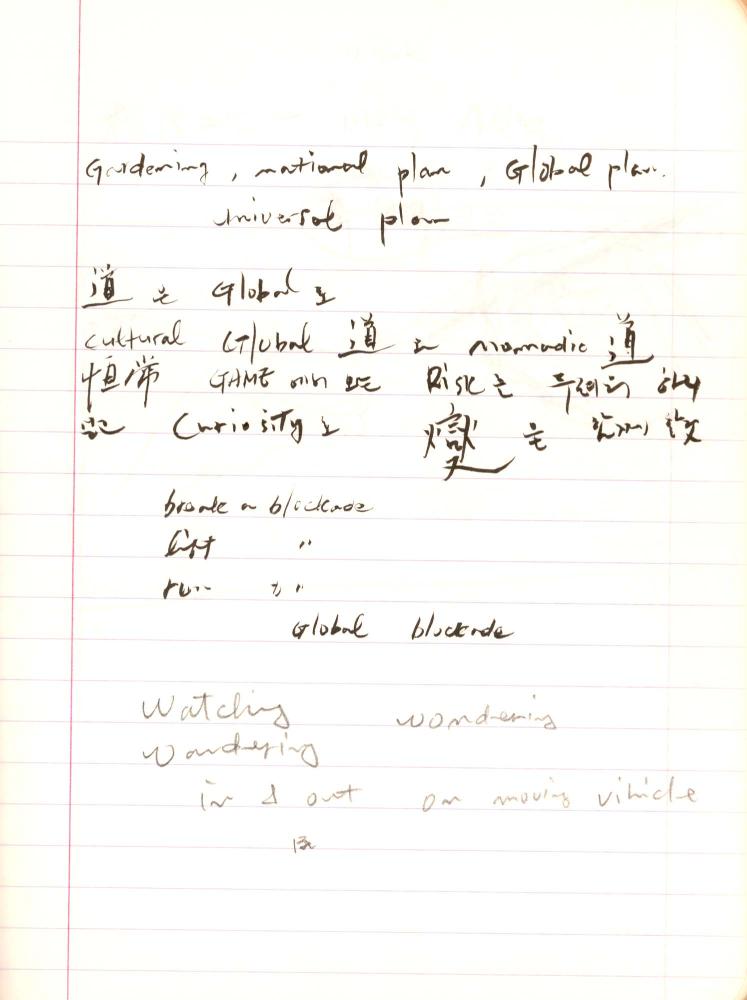 Gardening, national plan, Global plan.
universal plan
道은 Global로
cultural Global 道는 nomadic 道
恒常 GAME에서 오는 Risk를 두려워 하지
말고 Curiosity로 變을 찾게
break a blockade
lift 〃
run 〃
Global blockade
Watching wondering
Wandering
in & out on moving vihicle